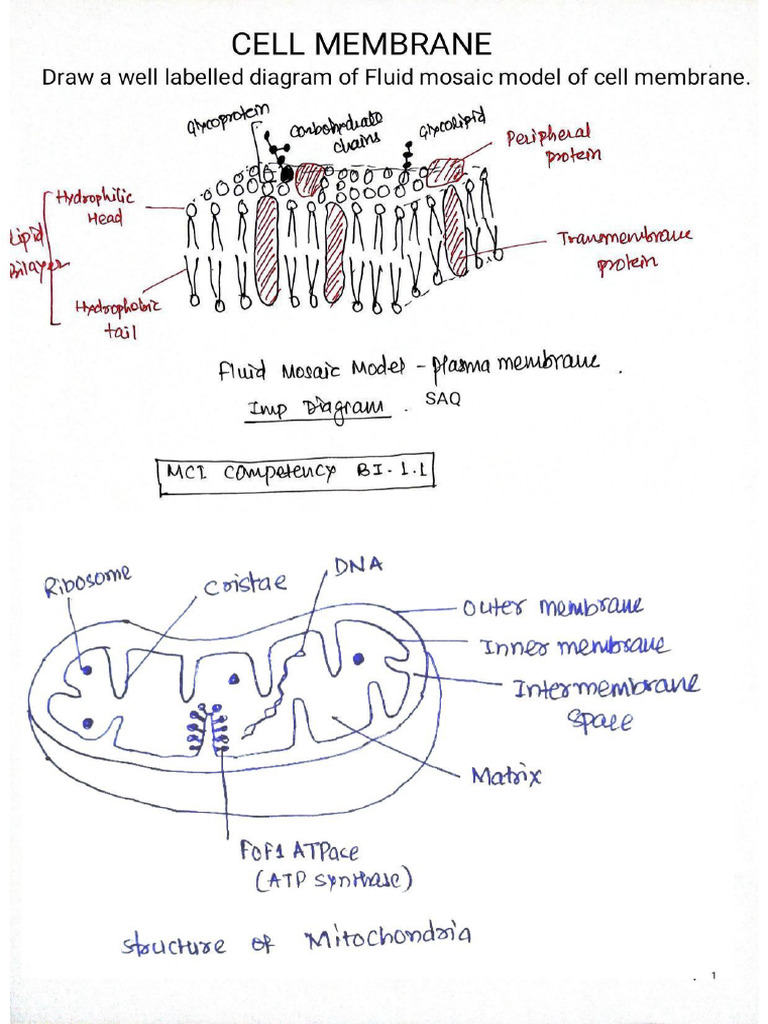 CELL MEMBRANE
Draw a well labelled diagram of Fluid mosaic model of cell membrane.
Glycoprotein
Carbohydrate
chains
Glycolipid
Peripheral
protein
Hydrophilic
Head
Lipid
Bilayer
Transmembrane
protein
Hydrophobic
tail
Fluid Mosaic Model - plasma membrane .
Imp Diagram . SAQ
MCI Competency BI-1.1
Ribosome
Cristae
DNA
Outer membrane
Inner membrane
Intermembrane
space
Matrix
FOF1 ATPace
(ATP synthase)
structure of Mitochondria
1